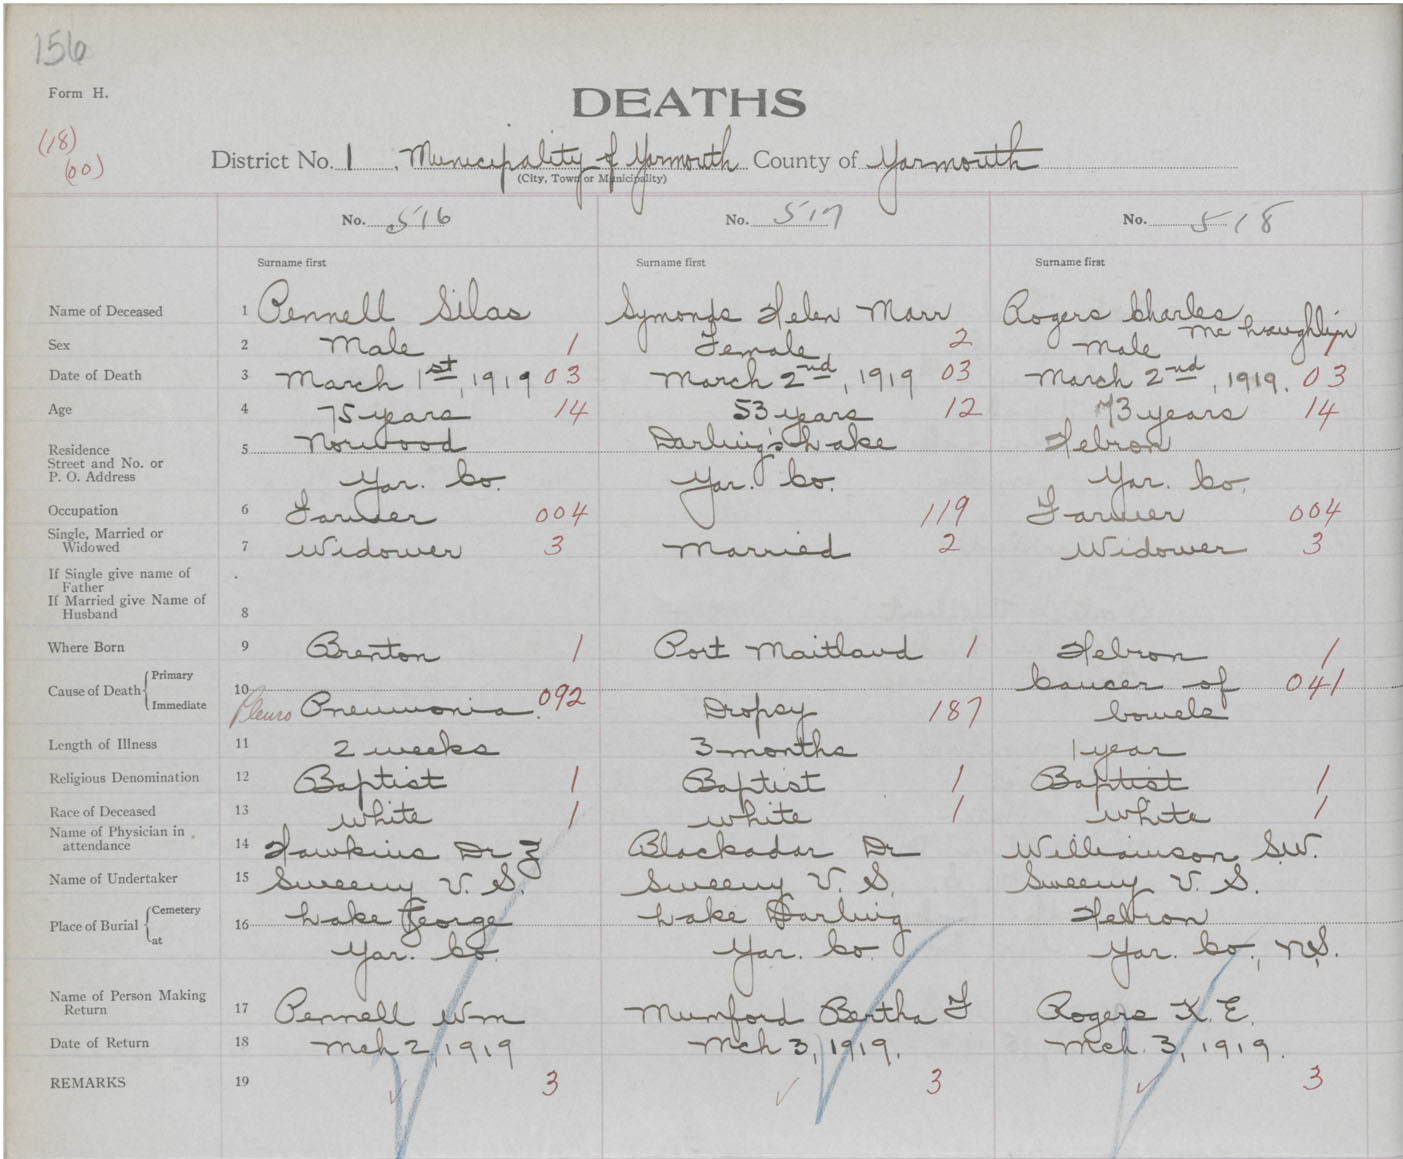 156
Form H.
DEATHS
(18)
(60)
District No. 1, Municipality of Yarmouth County of Yarmouth
(City, Town or Municipality)
No. 516 No. 517 No. 518
Surname first Surname first Surname first
Name of Deceased 1 Pennell Silas Symonds Helen Marr Rogers Charles
Mc Laughlin
Sex 2 Male 1 Female 2 Male 1
Date of Death 3 March 1st, 1919 03 March 2nd, 1919 03 March 2nd, 1919. 03
Age 4 75 years 14 53 years 12 73 years 14
Residence 5 Norwood Darling's Lake Hebron
Street and No. or
P. O. Address Yar. Co. Yar. Co. Yar. Co.
Occupation 6 Farmer 004 119 Farmer 004
Single, Married or
Widowed 7 Widower 3 Married 2 Widower 3
If Single give name of
Father
If Married give Name of
Husband 8
Where Born 9 Brenton 1 Port Maitland 1 Hebron 1
Cause of Death Primary 10 Cancer of 041
Immediate Pleuro Pneumonia. 092 Dropsy 187 bowels
Length of Illness 11 2 weeks 3 months 1 year
Religious Denomination 12 Baptist 1 Baptist 1 Baptist 1
Race of Deceased 13 White 1 White 1 White 1
Name of Physician in
attendance 14 Hawkins Dr Z Blackadar Dr Williamson S.W.
Name of Undertaker 15 Sweeny V. S. Sweeny V. S. Sweeny V. S.
Place of Burial Cemetery 16 Lake George Lake Darling Hebron
at Yar. Co. Yar. Co. Yar. Co., N.S.
Name of Person Making
Return 17 Pennell Wm Mumford Bertha F Rogers K. E.
Date of Return 18 Mch 2, 1919 Mch 3, 1919. Mch. 3, 1919.
REMARKS 19 3 3 3